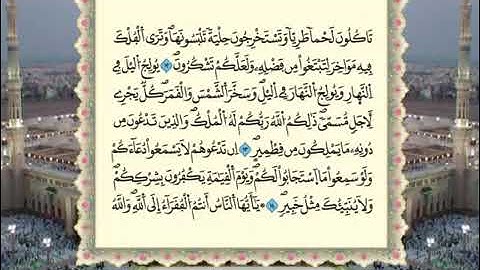 تَاكُلُونَ لَحْماً طَرِيّاً وَتَسْتَخْرِجُونَ حِلْيَةً تَلْبَسُونَهَا وَتَرَى اَلْفُلْكَ
فِيهِ مَوَاخِرَ لِتَبْتَغُواْ مِن فَضْلِهِۦ وَلَعَلَّكُمْ تَشْكُرُونَ ١٢ يُولِجُ اُليْلَ فِے
اِلنَّهارِ وَيُولِجُ اُلنَّهَارَ فِے اِليْلِ وَسَخَّرَ اَلشَّمْسَ وَالْقَمَرَ كُلٌّ يَجْرِے
لِأَجَلٍ مُّسَمّيً ذَٰلِكُمُ اُللَّهُ رَبُّكُمْ لَهُ اُلْمُلْكُ وَالذِينَ تَدْعُونَ مِن
دُونِهِۦ مَا يَمْلِكُونَ مِن قِطْمِيرٍ ١٣ اِن تَدْعُوهُمْ لَا يَسْمَعُواْ دُعَآءَكُمْ
وَلَوْ سَمِعُواْ مَا اَسْتَجَابُواْ لَكُمْ وَيَوْمَ اَلْقِيَٰمَةِ يَكْفُرُونَ بِشِرْكِكُمْ
وَلَا يُنَبِّئُكَ مِثْلُ خَبِيرٍ ١٤ يَٰٓأَيُّهَا اَلنَّاسُ أَنتُمُ اُلْفُقَرَآءُ اِلَى اَللَّهِ وَاللَّهُ